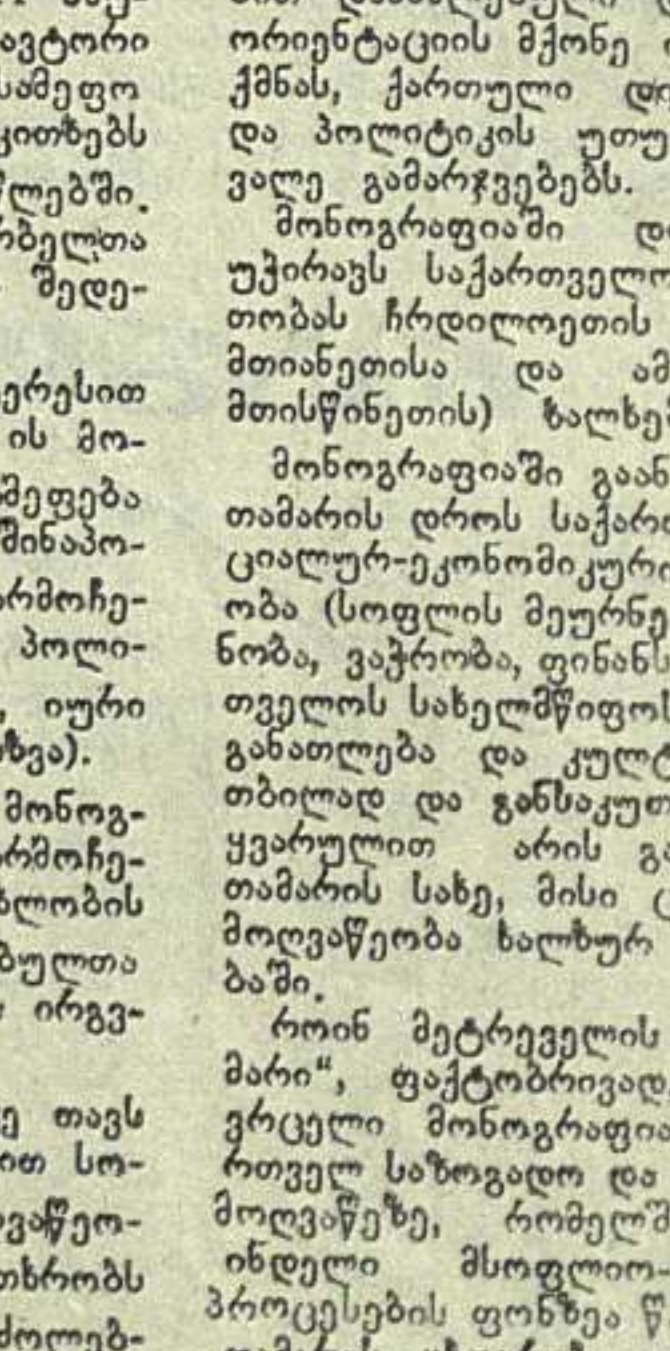 ავტორი
სამეფო
კითხებს
წლებში.
რბელთა
შედე-
ერესით
ის მო-
მეფება
შინაპო-
არმოჩე-
პოლი-
იური
მონოგ-
არმოჩე-
ბლობის
ბულთა
ირგვ-
თავს
ით სო-
ვაწეო-
თხრობს
ძოლებ-
ორიენტაციის მქონე
ქმნას, ქართული
და პოლიტიკის უთუ
ვალე გამარჯვებებს.
მონოგრაფიაში დი
უჭირავს საქართველო
თობას ჩრდილოეთის
მთიანეთისა და ამ
მთისწინეთის) ხალხე
მონოგრაფიაში გაან
თამარის დროს საქარ
ციალურ-ეკონომიკური
ობა (სოფლის მეურნე
ნობა, ვაჭრობა, ფინანს
თველოს სახელმწიფოს
განათლება და კულტ
თბილად და განსაკუთ
ყვარულით არის გა
თამარის სახე, მისი
მოღვაწეობა ხალხურ
ბაში.
როინ მეტრეველის
მარი“, ფაქტობრივად,
ვრცელი მონოგრაფია
რთველ საზოგადო და
მოღვაწეზე, რომელშ
ინდელი მსოფლიო-
პროცესების ფონზეა წ